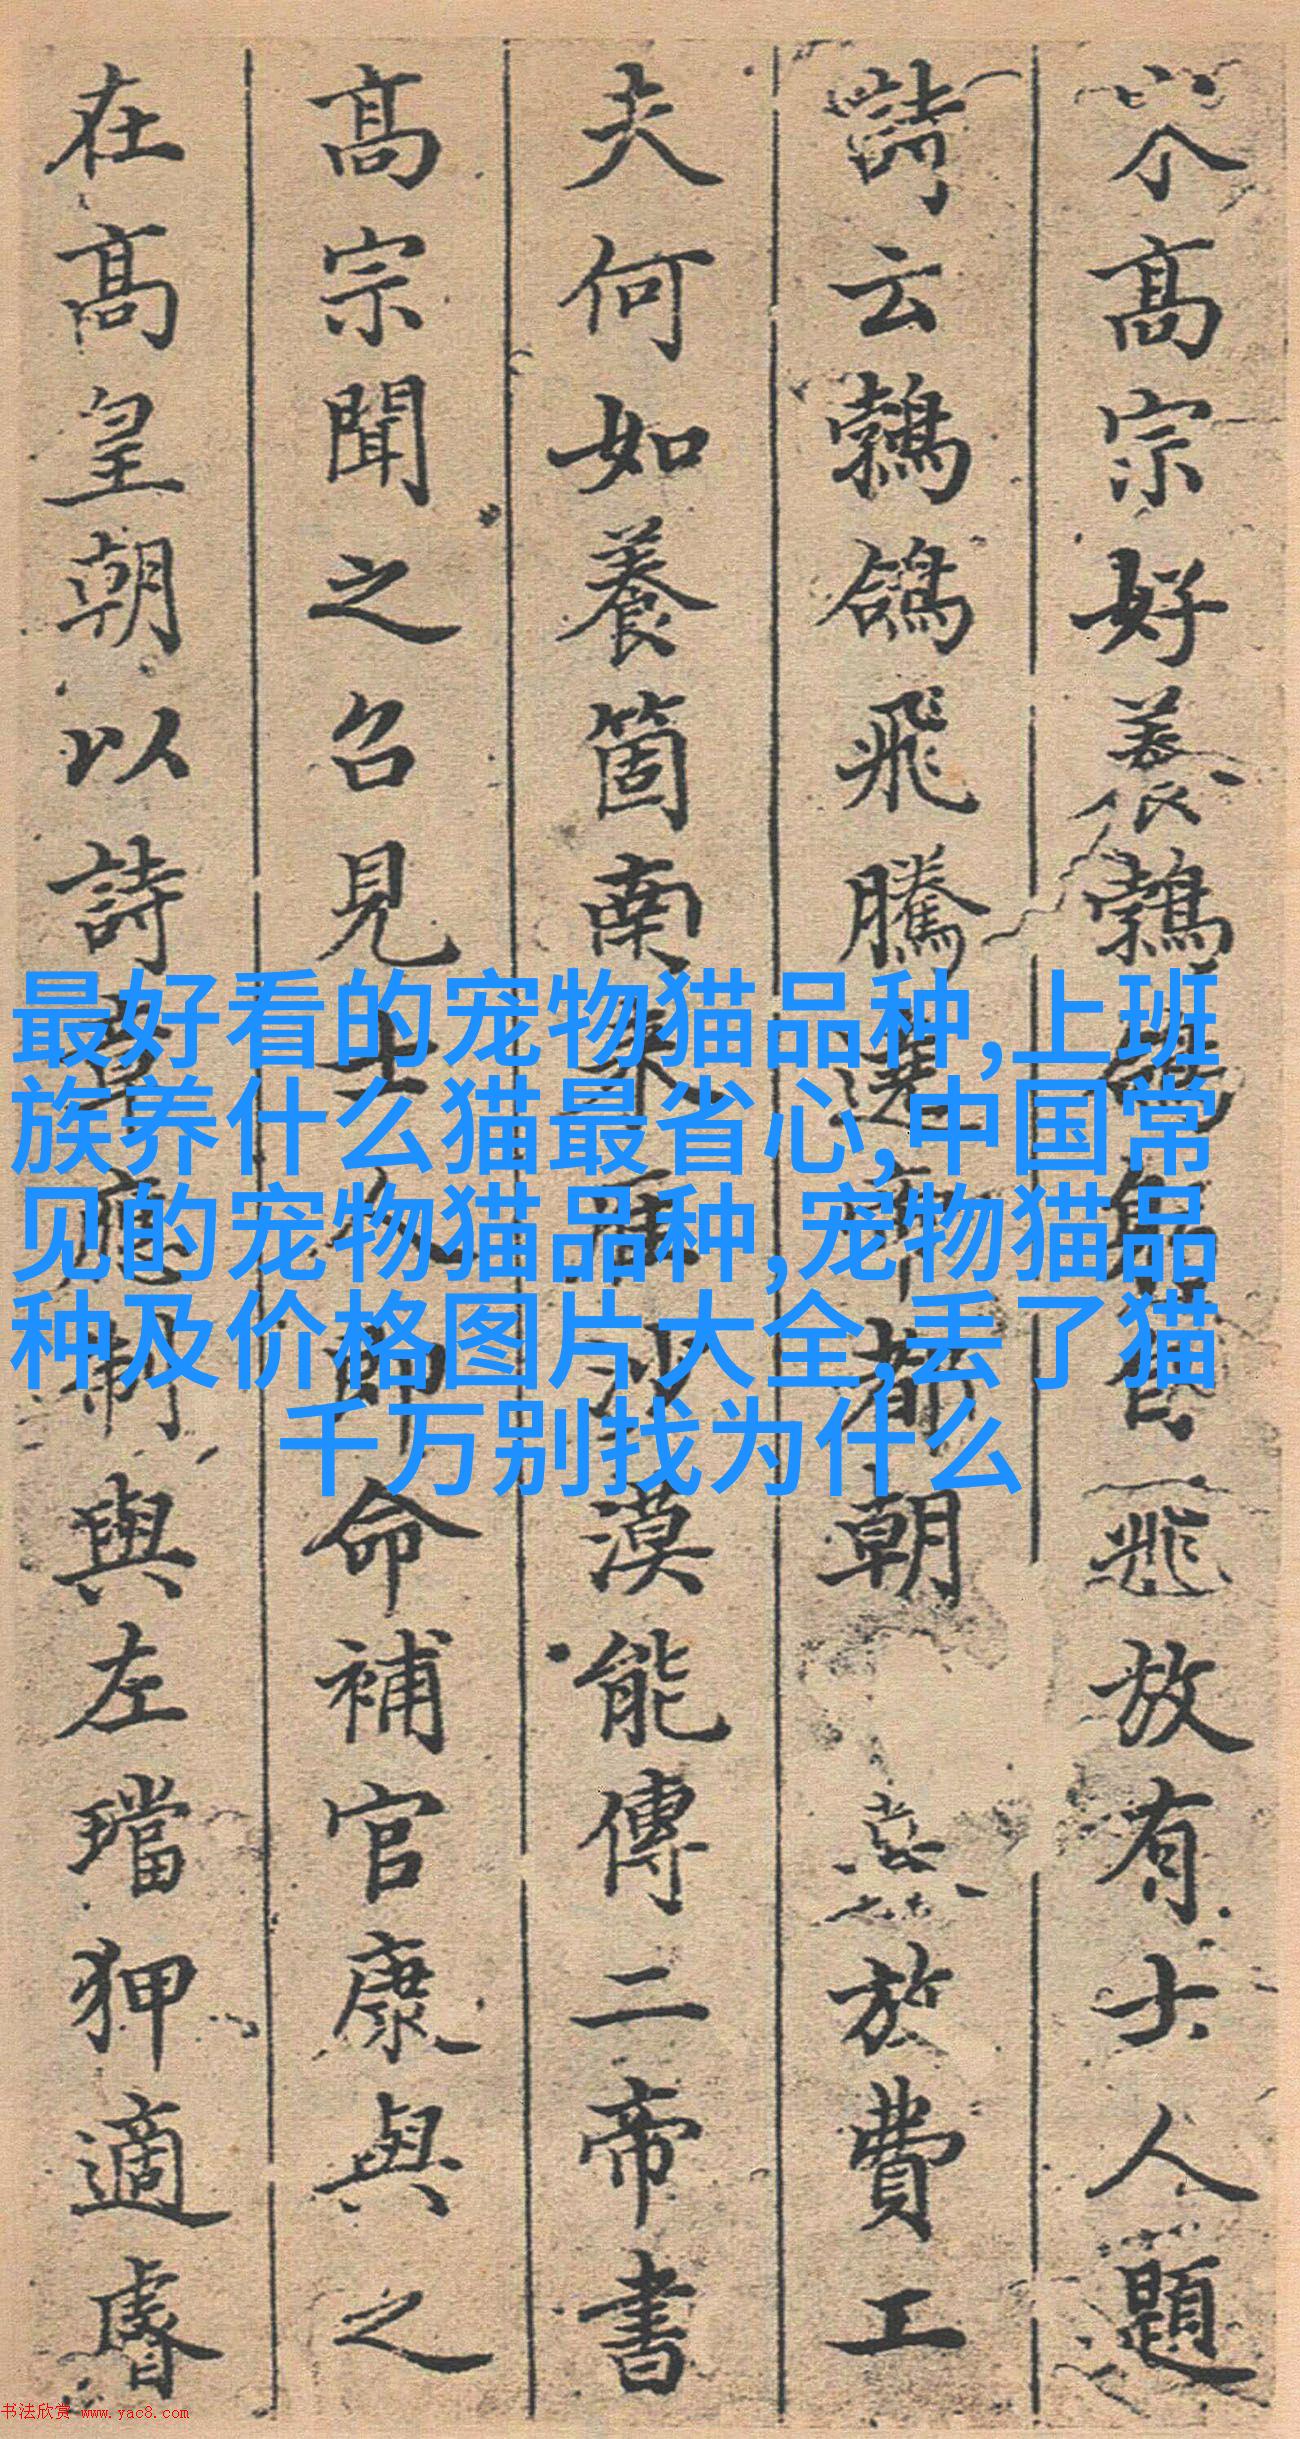 高宗好養鵓鴿躬自飛放有士人題
詩云鵓鴿飛騰遶帝都朝於費工
夫何如養箇南來鴈沙漠能傳二帝書
高宗聞之召見士人即命補官康與之
在高皇朝以詩章應制與左璫狎適睿
最好看的宠物猫品种,上班
族养什么猫最省心,中国常
见的宠物猫品种,宠物猫品
种及价格图片大全,丢了猫
千万别找为什么
书法欣赏 www.yac8.com